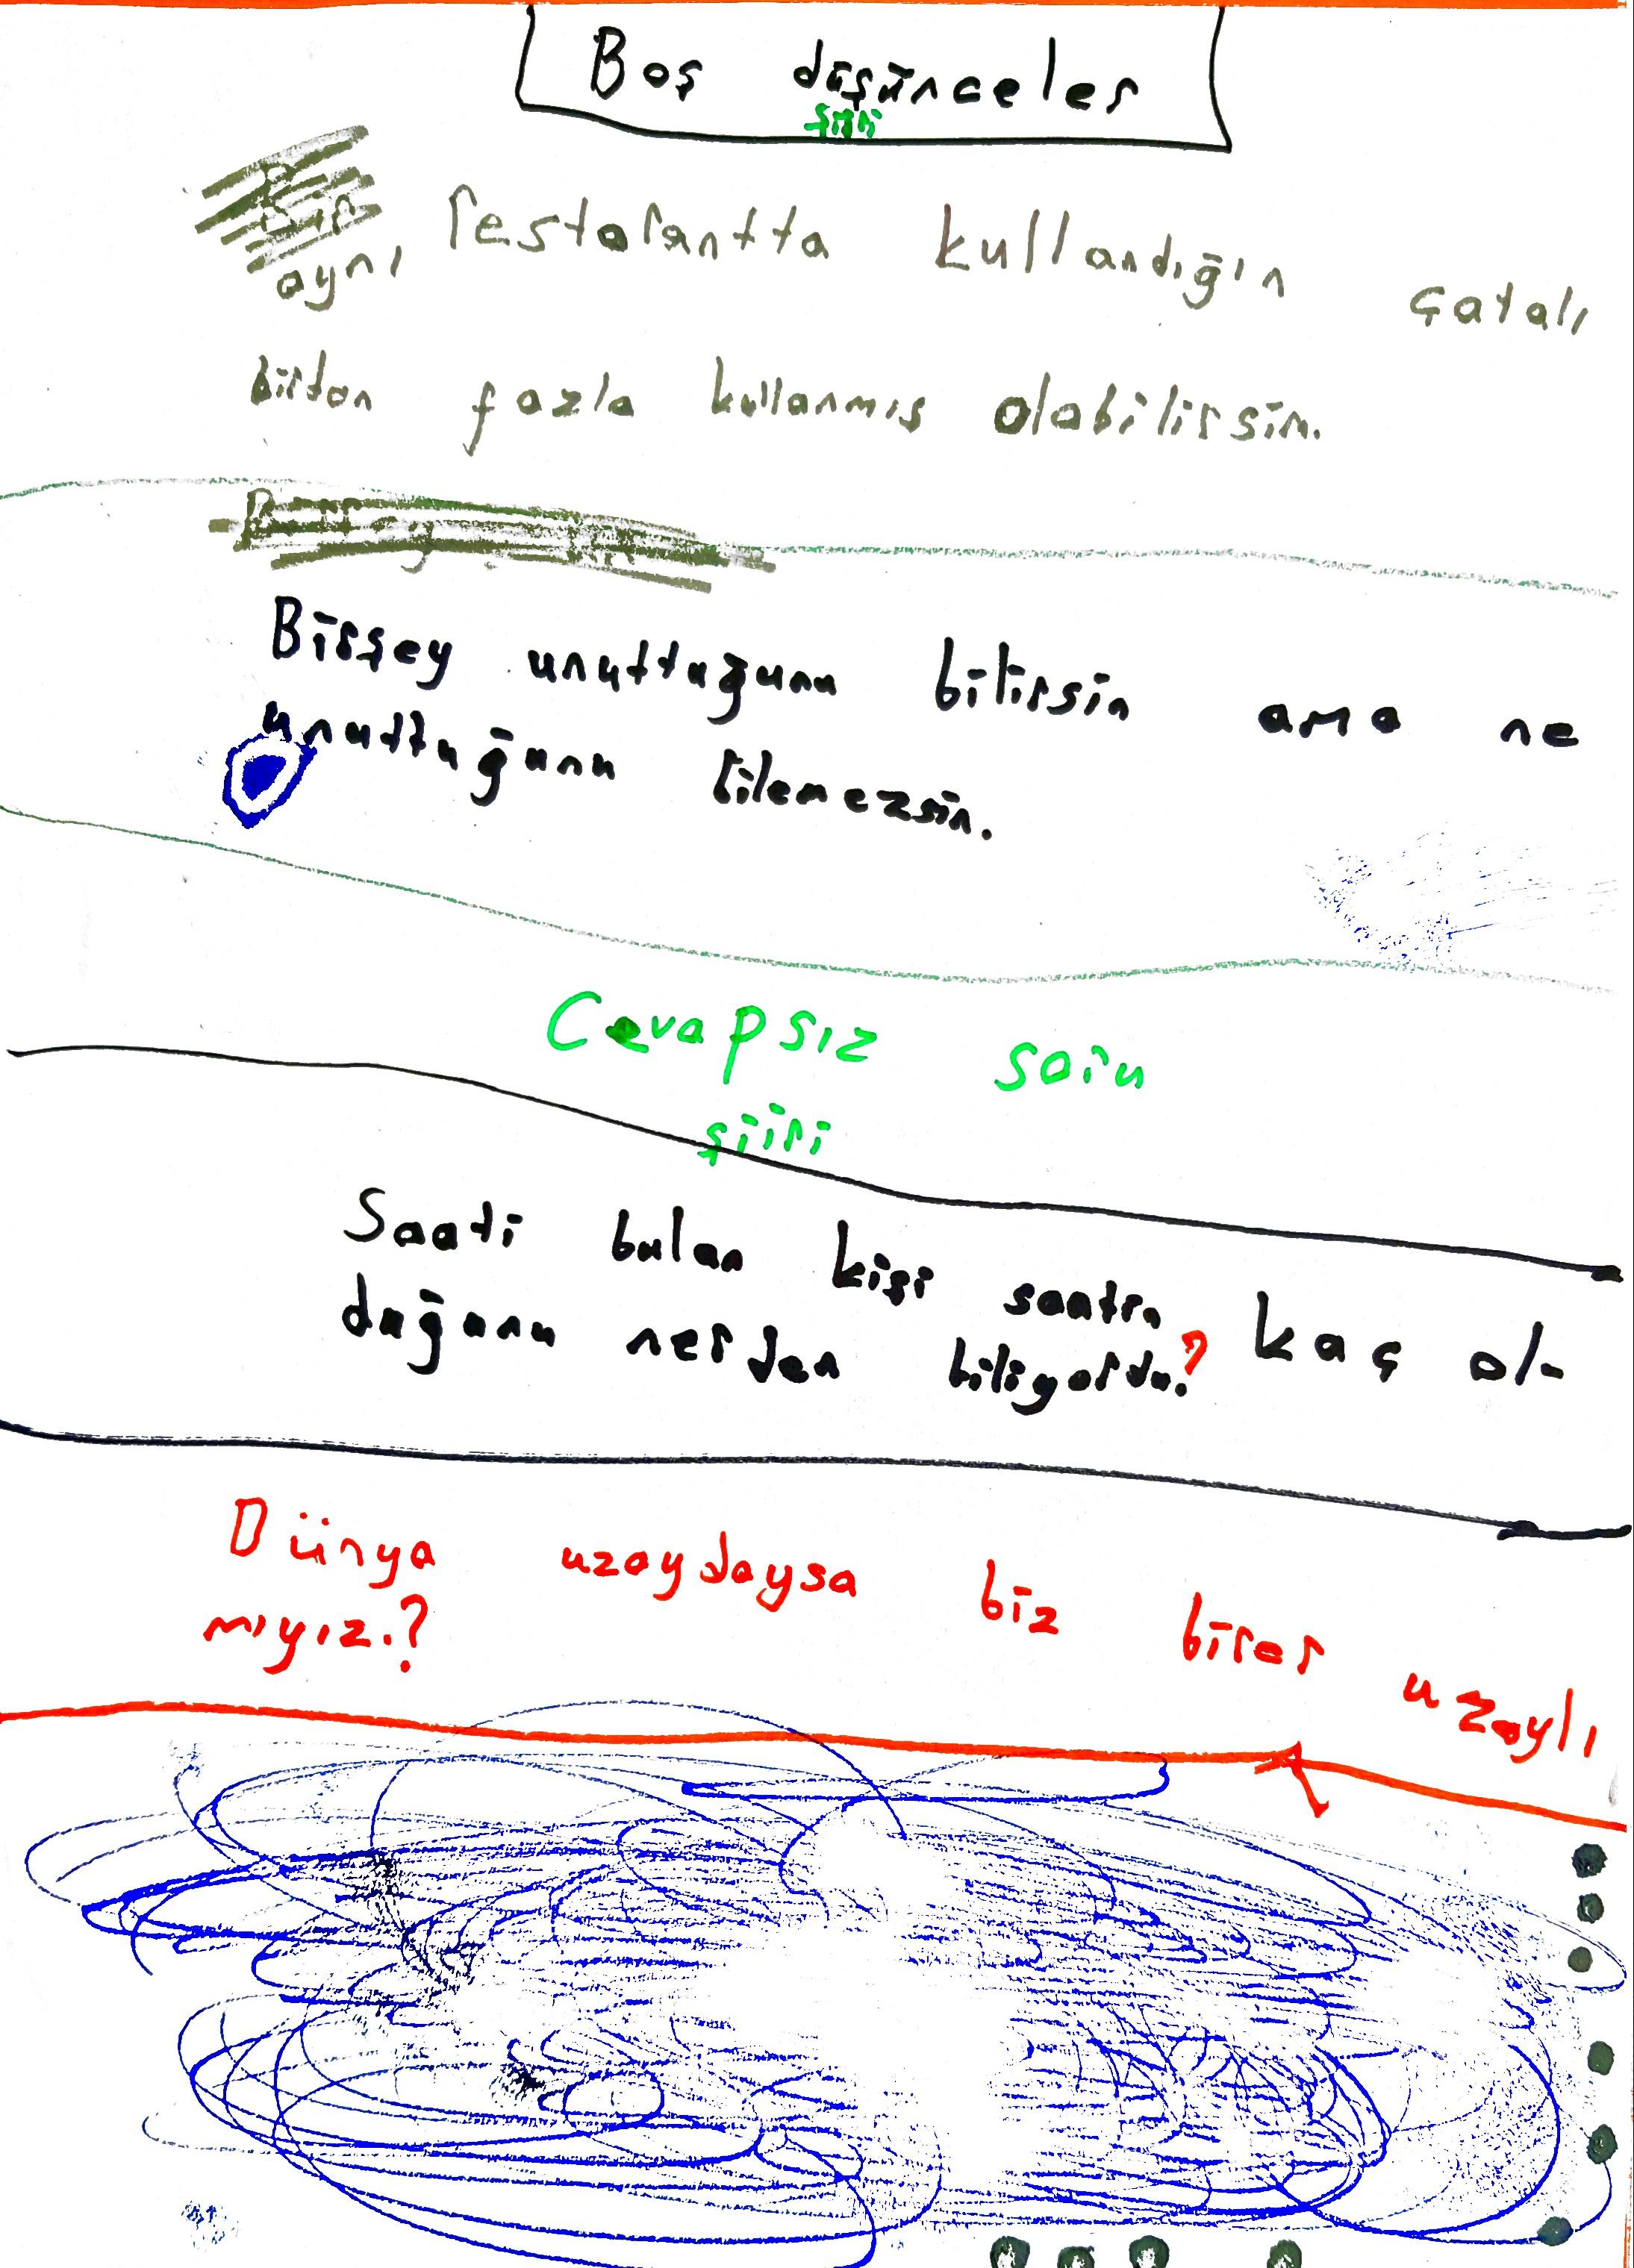 Boş düşünceler
şiiri
aynı restorantta kullandığın çatalı
birden fazla kullanmış olabilirsin.
Birşey unuttuğunu bilirsin ama ne
unuttuğunu bilemezsin.
Cevapsız soru
şiiri
Saati bulan kişi saatin kaç ol-
duğunu nerden biliyordu?
Dünya uzaydaysa biz birer uzaylı
mıyız.?